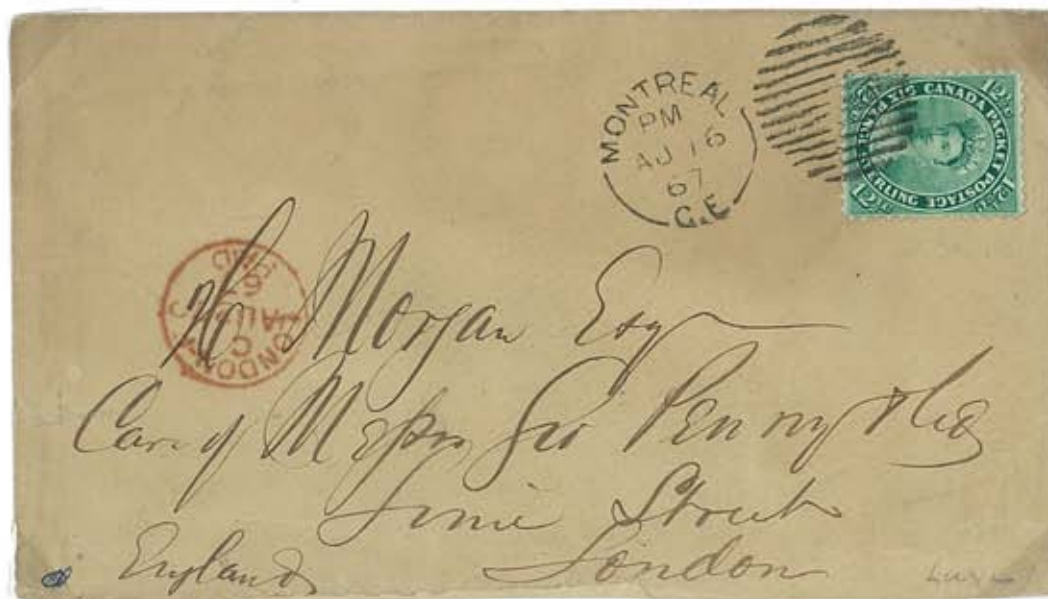 MONTREAL
PM
AU 16
67
C.E
CANADA PACKET POSTAGE
SIX PENCE STERLING
12½c
LONDON
C
AU
67
PAID
Morgan Esqr
Care of Messrs Geo Penny & Co
Lime Street
London
England